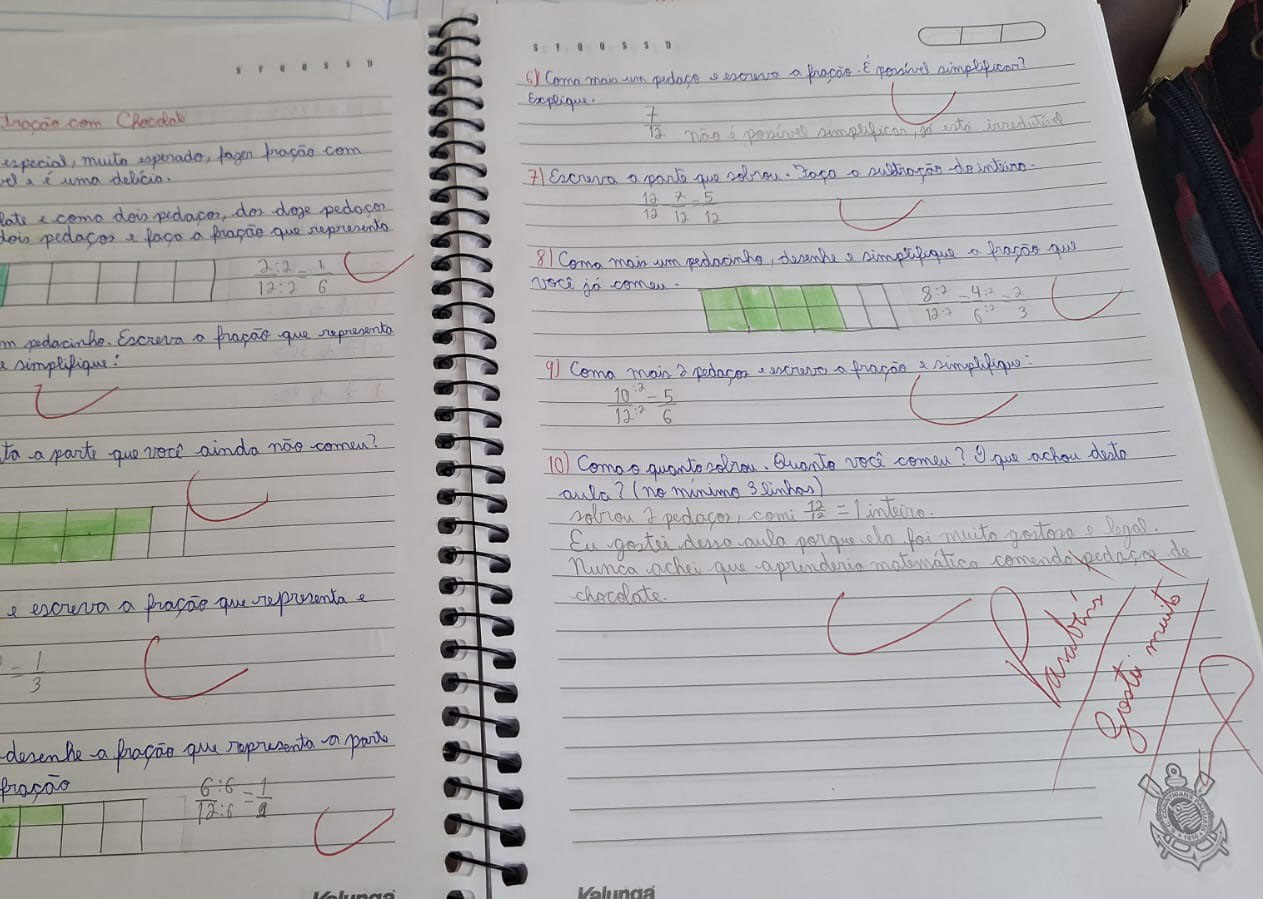 S T Q Q S S D
Fração com Chocolate
especial, muito esperado, fazer fração com
é uma delícia.
late e coma dois pedaços, dos doze pedaços
dois pedaços e faça a fração que representa
2:2/12:2 = 1/6
m pedacinho. Escreva a fração que representa
e simplifique:
ta a parte que você ainda não comeu?
e escreva a fração que representa e
= 1/3
desenhe a fração que representa a parte
fração
6:6/12:6 = 1/2
Kalunga
S T Q Q S S D
6) Coma mais um pedaço e escreva a fração. É possível simplificar?
Explique.
7/12 não é possível simplificar, já está irredutível
7) Escreva a parte que sobrou. Faça a subtração do inteiro.
12/12 - 7/12 = 5/12
8) Coma mais um pedacinho, desenhe e simplifique a fração que
você já comeu.
8:2/12:2 = 4:2/6:2 = 2/3
9) Coma mais 2 pedaços e escreva a fração e simplifique:
10:2/12:2 = 5/6
10) Coma o quanto sobrou. Quanto você comeu? O que achou desta
aula? (no mínimo 3 linhas)
sobrou 2 pedaços, comi 12/12 = 1 inteiro.
Eu gostei dessa aula porque ela foi muito gostosa e legal.
Nunca achei que aprenderia matemática comendo pedaços de
chocolate.
Parabéns
Gostei muito
CORINTHIANS
1910
Kalunga